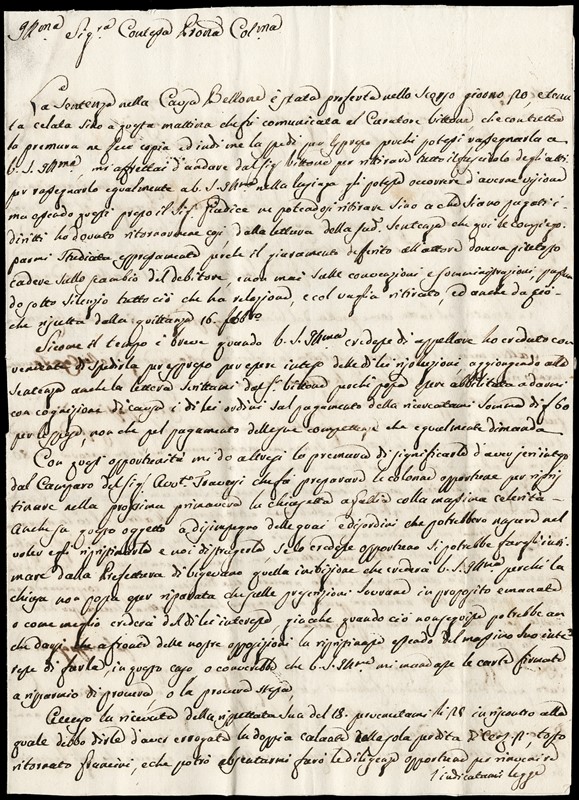 Ill.ma Sig.ra Contessa Prona Col.ma
La Sentenza nella Causa Bellone è stata proferta nello scorso giorno 20, e tenu
ta celata sino a questa mattina che fù comunicata al Curatore Vittone che con tutta
la premura ne fece copia ed indi me la spedì per espresso perchè potessi rassegnarla a
V.S. Ill.ma, mi affrettai d'andare dal Sig.r Vittone per ritirare tutto il fascicolo degli atti
per rassegnarlo egualmente a V.S. Ill.ma nella lusinga gli potesse occorrere d'averne visione
ma essendo questi presso il Sig. Giudice ne potendosi ritirare sino a che siano pagati i
diritti ho dovuto ritornarmene così dalla lettura della sud.a Sentenza che qui le compiego.
parmi studiata appositamente perchè il giuramento deferito all'attore doveva piuttosto
cadere sullo scambio del debitore, e non mai sulle convenzioni e somministrazioni, passan
do sotto silenzio tutto ciò che ha relazione, e col vaglia ritirato, ed anche da ciò
che risulta dalla quittanza 16 feb.ro
Siccome il tempo è breve quando V.S. Ill.ma credesse di appellare ho creduto con
veniente di spedirla per espresso per essere inteso delle di lei risoluzioni aggiongendo alla
Sentenza anche la lettera scrittami dal S.r Vittone perchè possa essere abilitata a darmi
con cognizione di causa i di lei ordini sul pagamento della ricercatami somma di f. 60
per le spese, non che pel pagamento delle sue competenze che egualmente dimanda
Con quest'opportunità mi do altresì la premura di significarle d'aver jeri inteso
dal Camparo del Sig.r Avv.to Travesi che fà preparare le colonne opportune per ripris
tinare nella prossima primavera la chiusetta a fallè colla massima celerità
Anche su questo oggetto a disimpegno delle guai e disordini che potrebbero nascere nel
voler essi ripristinarla e noi distruggerla se lo credesse opportuno si potrebbe fargli inti
mare dalla Prefettura di Vigevano quella inibizione che crederà V.S. Ill.ma perchè la
chiusa non possa esser riparata che sulle prescrizioni Sovrane in proposito emanate
o come meglio crederà del di lei interesse giacchè quando ciò non seguisse potrebbe an
che darsi che a fronte delle nostre opposizioni la ripristinasse essendo del massimo suo inte
resse di farlo, in questo caso o converrebbe che V.S. Ill.ma mi mandasse le carte firmate
a risparmio di procura, o la procura stessa
Accuso la ricevuta della rispettata sua del 18. pervenutami li 28 in riscontro alla
quale debbo dirle d'aver erogata la doppia calante della sola perdita
ritornato e che potrò assentarmi farò le diligenze opportune per rinvenire
l'indicatami legge